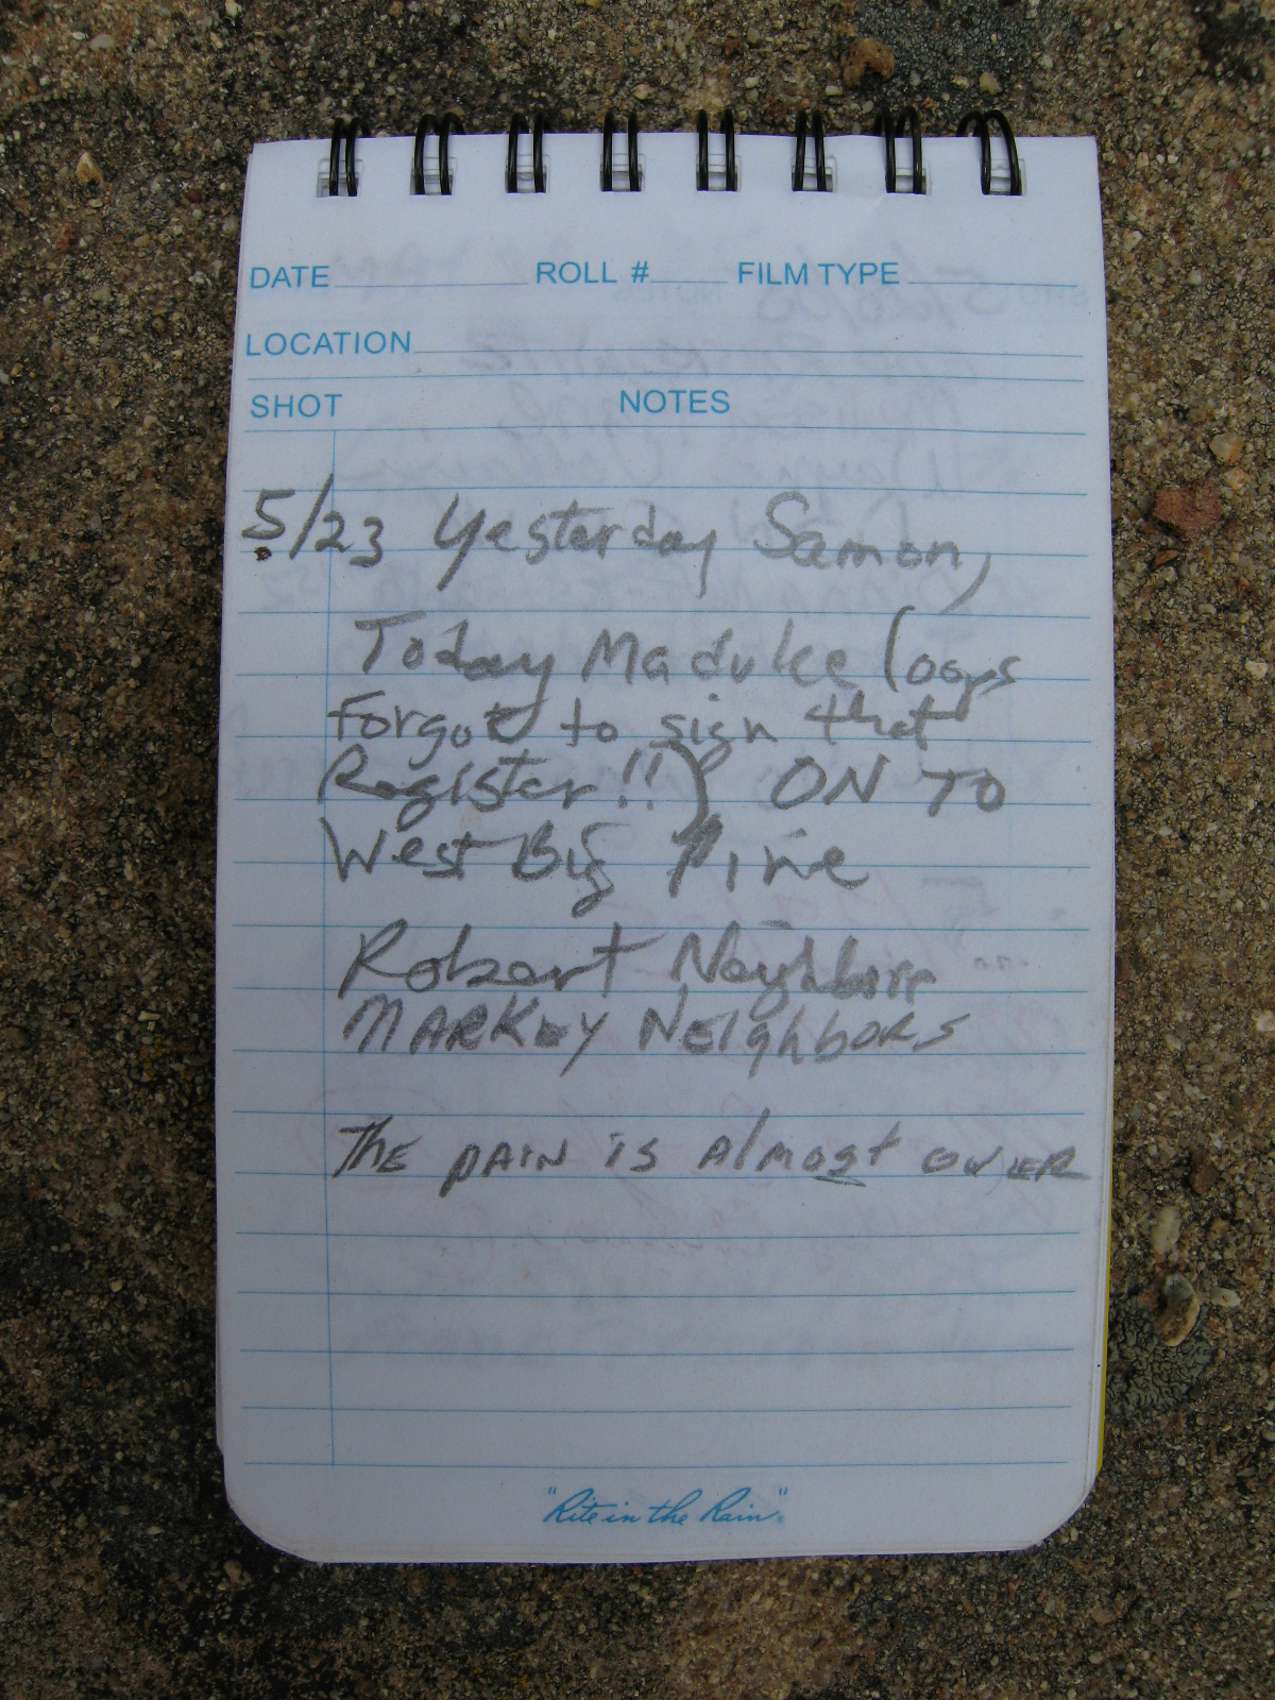 DATE ROLL # FILM TYPE
LOCATION
SHOT NOTES
5/23 Yesterday Samon,
Today Maduke (oops
forgot to sign that
Register!!) ON TO
West Big Pine
Robert Neighbors
MARKEY NEIGHBORS
THE PAIN IS AlMOST OVER
"Rite in the Rain"